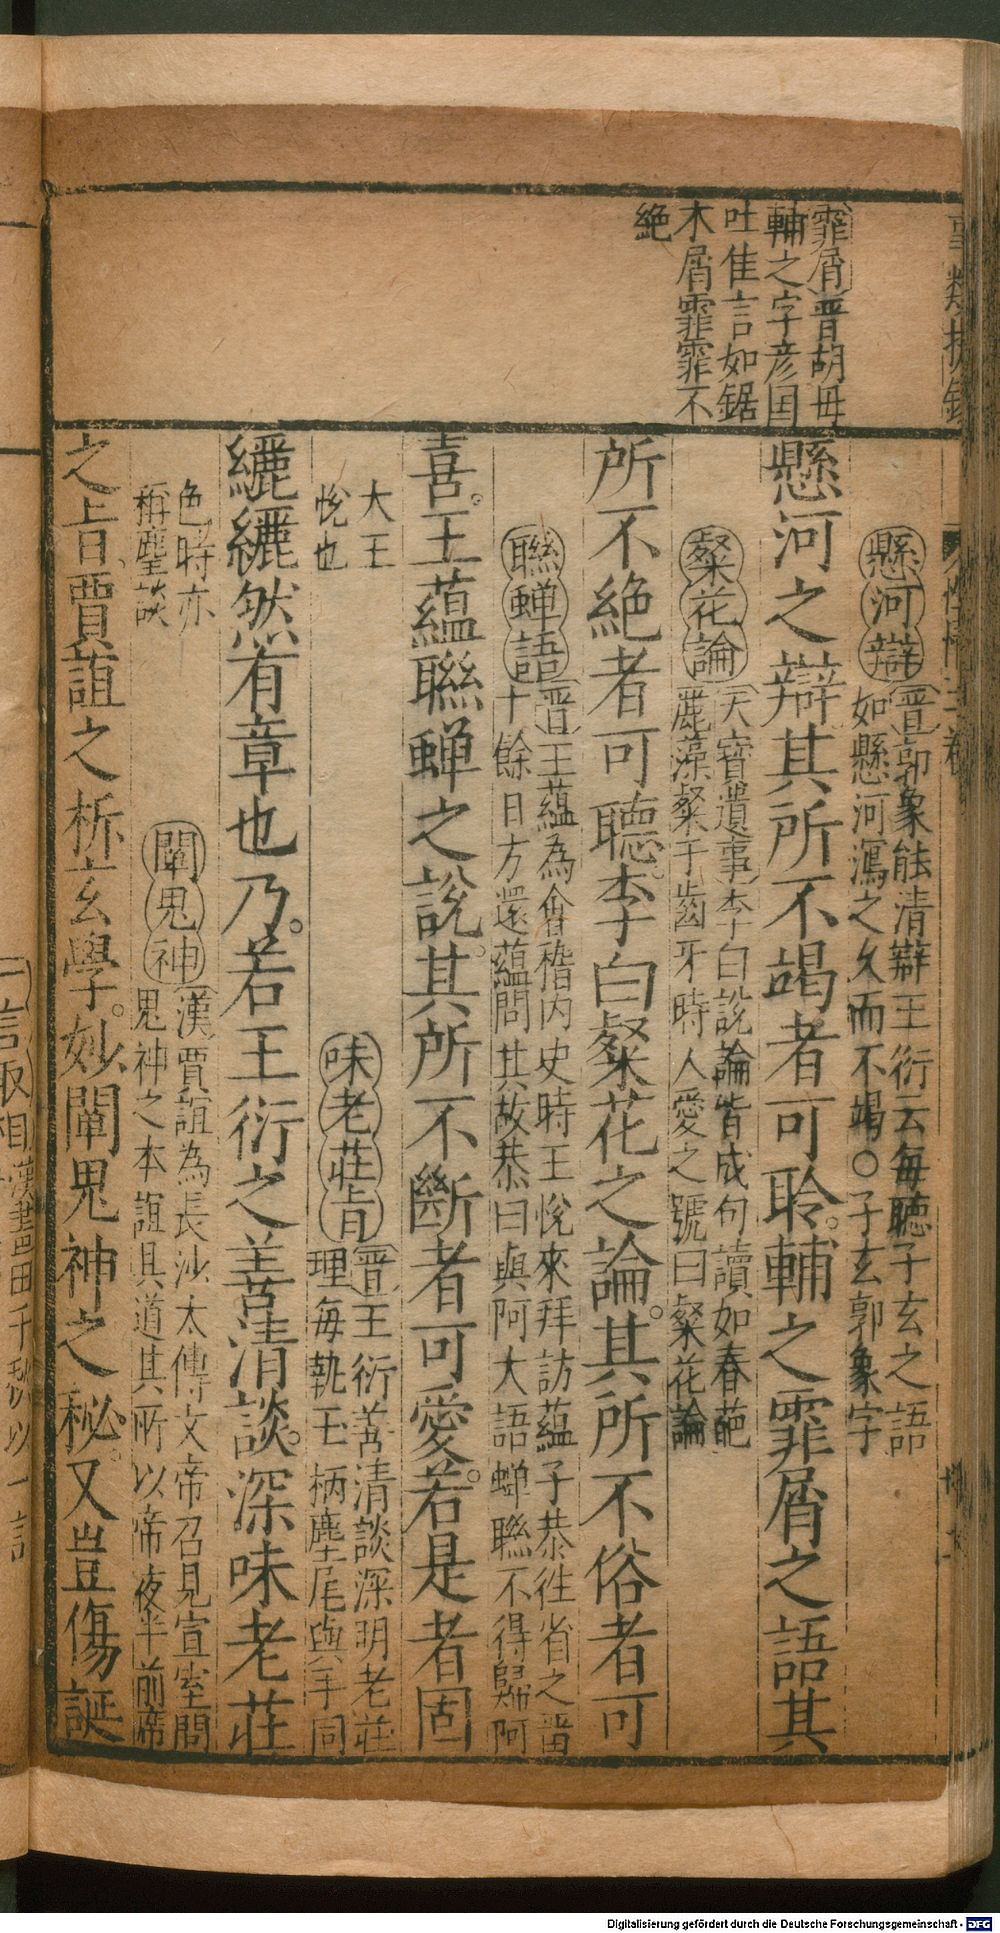 霏屑晋胡毋
輔之字彦国
吐佳言如鋸
木屑霏霏不
絶
懸河辯 晋郭象能清辯王衍云每聴子玄之語
如懸河瀉之久而不竭○子玄郭象字
懸河之辯其所不竭者可聆輔之霏屑之語其
粲花論 天寳遺事李白説論皆成句讀如春葩
麗藻粲于齒牙時人愛之號曰粲花論
所不絶者可聽李白粲花之論其所不俗者可
聯蝉語 晋王蘊為會稽内史時王悅來拜訪蘊子恭往省之畱
十餘日方還蘊問其故恭曰與阿大語蝉聯不得歸阿
喜王蘊聯蝉之説其所不斷者可愛若是者固
大王
悅也
味老莊旨 晋王衍善清談深明老莊
理每執玉柄麈尾與手同
纚纚然有章也乃若王衍之善清談深味老莊
色時亦
稱麈談
闡鬼神 漢賈誼為長沙太傅文帝召見宣室問
鬼神之本誼具道其所以帝夜半前席
之旨賈誼之析玄學妙闡鬼神之秘又豈傷誕
一言取相漢畫田千秋以一言
Digitalisierung gefördert durch die Deutsche Forschungsgemeinschaft - DFG